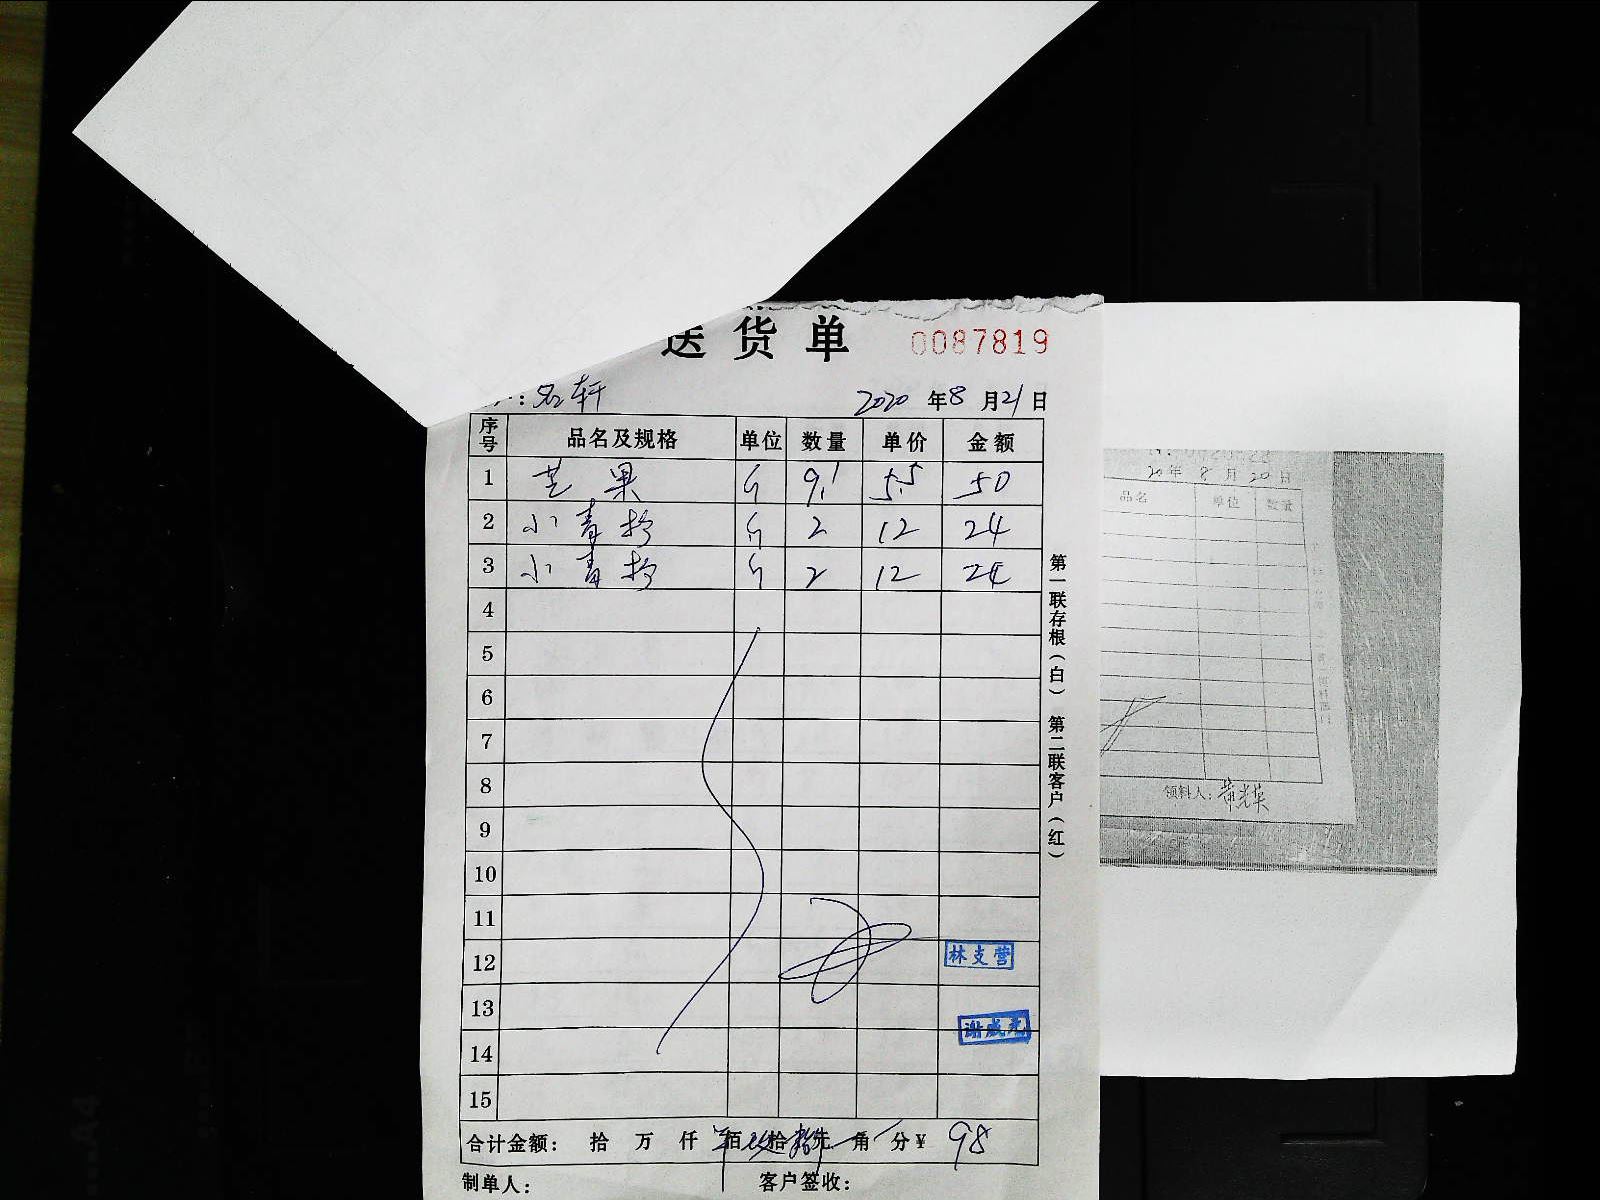 送货单 0087819
：名轩 2020 年 8 月 21 日
序号 品名及规格 单位 数量 单价 金额
1 芒果 斤 9.1 5.5 50
2 小青柠 斤 2 12 24
3 小青柠 斤 2 12 24
4
5
6
7
8
9
10
11
12 林支营
13 谢威光
14
15
合计金额： 拾 万 仟 佰 拾 元 角 分 ¥ 98
制单人： 客户签收：
第一联存根（白） 第二联客户（红）
20 年 8 月 20 日
品名 单位 数量
领料人：黄光英
A4